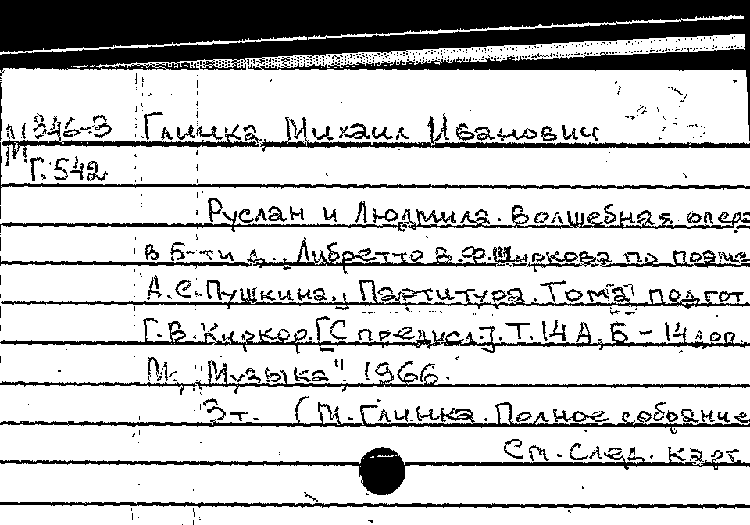 М 346-3 Глинка, Михаил Иванович
Г. 542
Руслан и Людмила. Волшебная опер
в 5-ти д., Либретто В.Ф.Ширкова по поэме
А.С.Пушкина. Партитура. Тома подгот
Г.В.Киркор.[С предисл.]. Т.14 А, Б - 14 доп.
М., "Музыка", 1966.
3т. (М.Глинка. Полное собрание
См. след. карт.